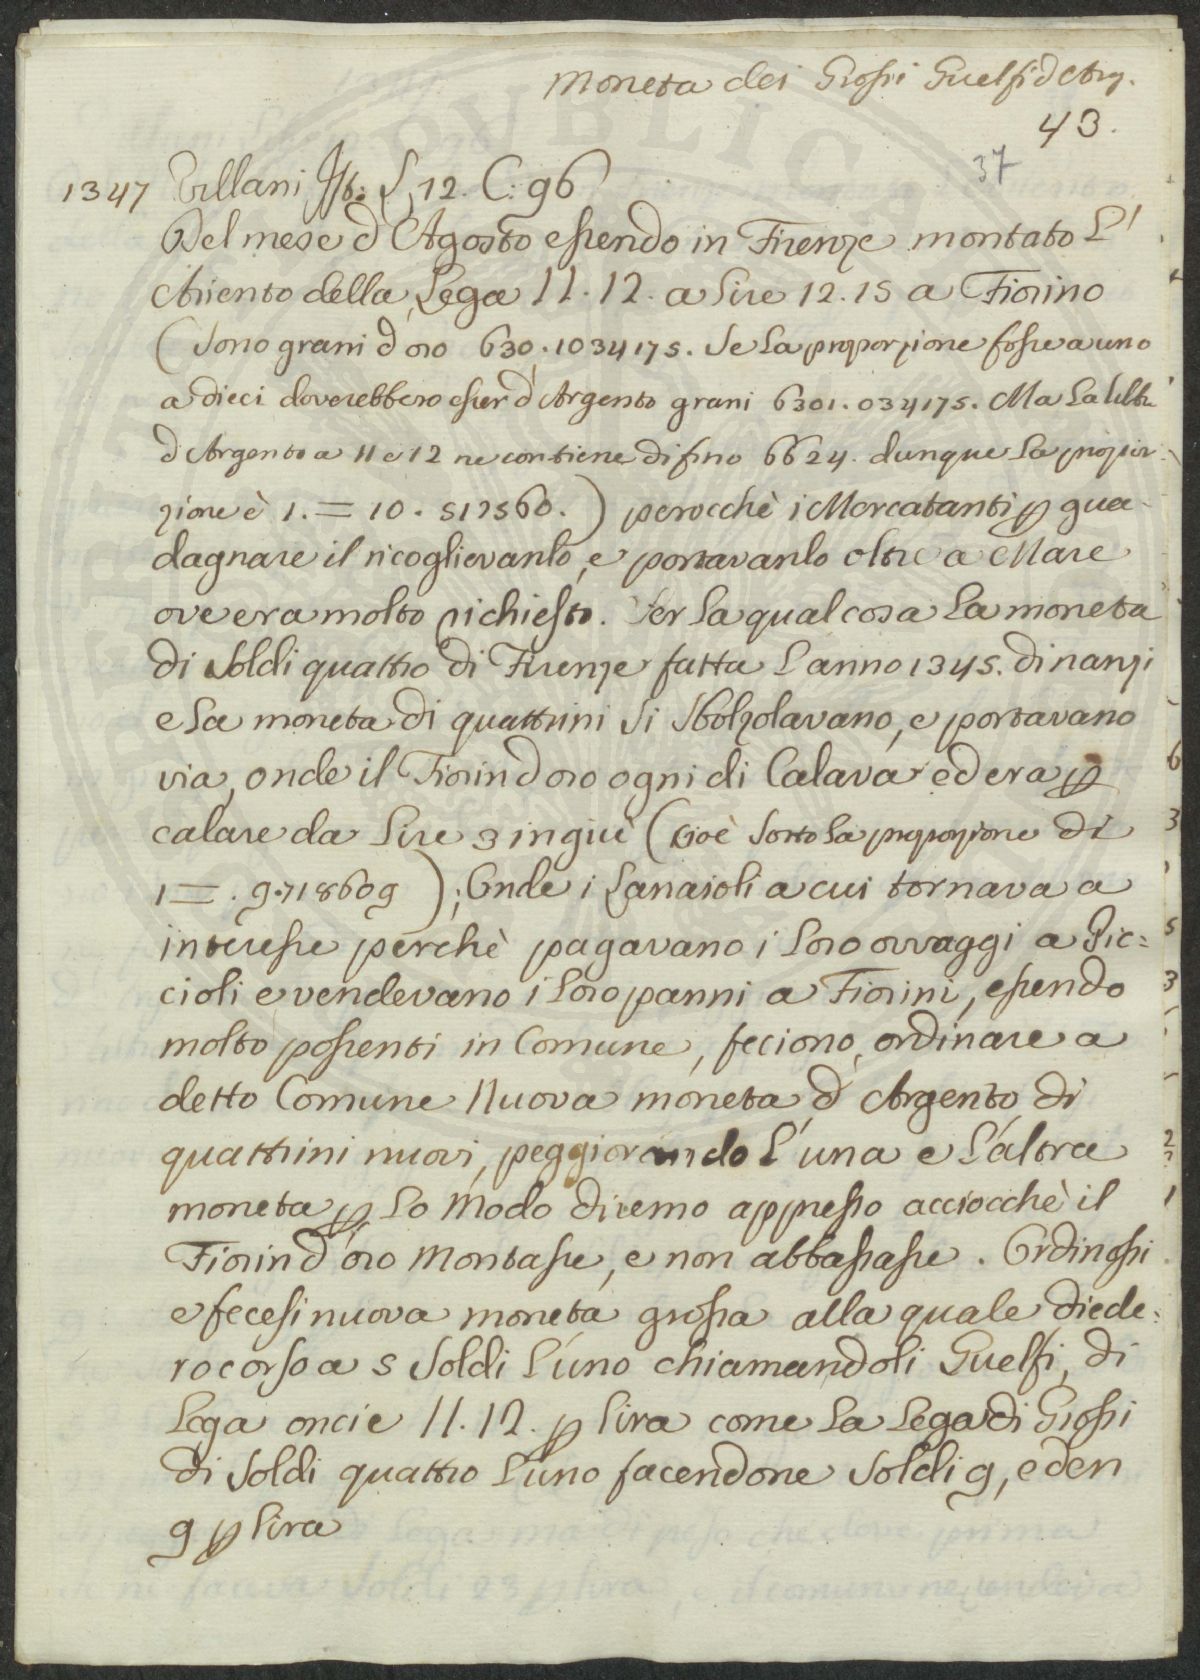 Moneta dei Grossi Guelfi d'Arg.
43.
37
1347 Villani L. 12. C: 96
Del mese d'Agosto essendo in Firenze montato l'
Ariento della Lega 11.12. a Lire 12.15 a Fiorino
(Sono grani d'oro 630.1034175. Se la proporzione fosse a uno
a dieci doverebbero esser d'Argento grani 6301.034175. Ma la libb.
d'Argento a 11 e 12 ne contiene di fino 6624. dunque la propor-
zione è 1. = 10.512560.) perocchè i Mercatanti p gua-
dagnare il ricoglievanlo, e portavanlo oltre a Mare
ove era molto richiesto. Per la qual cosa la moneta
di Soldi quattro di Firenze fatta l'anno 1345. dinanzi
e la moneta di quattrini si sbolzolavano, e portavano
via, onde il Fiorin d'oro ogni di Calava ed era p
calare da Lire 3 in giù (Cioè sotto la proporzione di
1 = . 9.718609); Onde i Lanaioli a cui tornava a
interesse perchè pagavano i loro ovraggi a Pic=
cioli e vendevano i loro panni a Fiorini, essendo
molto possenti in Comune, feciono ordinare a
detto Comune Nuova moneta d'Argento di
quattrini nuovi, peggiorando l'una e l'altra
moneta p lo Modo diremo appresso acciocchè il
Fiorin d'oro Montasse, e non abbassasse. Ordinossi
e fecesi nuova moneta grossa alla quale diede-
ro corso a 5 Soldi l'uno chiamandoli Guelfi, di
Lega oncie 11.12. p lira come la Lega di Grossi
di Soldi quattro l'uno facendone Soldi 9, e den
9 p lira